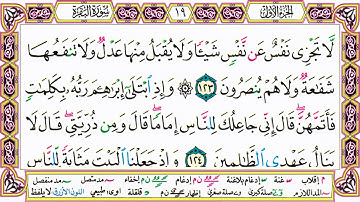 الجزء الأول ١٩ سورة البقرة
لَّا تَجْزِى نَفْسٌ عَن نَّفْسٍ شَيْـًٔا وَلَا يُقْبَلُ مِنْهَا عَدْلٌ وَلَا تَنفَعُهَا
شَفَٰعَةٌ وَلَا هُمْ يُنصَرُونَ ١٢٣ وَإِذِ ابْتَلَىٰٓ إِبْرَٰهِـۧمَ رَبُّهُۥ بِكَلِمَٰتٍ
فَأَتَمَّهُنَّ ۖ قَالَ إِنِّى جَاعِلُكَ لِلنَّاسِ إِمَامًا ۖ قَالَ وَمِن ذُرِّيَّتِى ۖ قَالَ لَا
يَنَالُ عَهْدِى الظَّٰلِمِينَ ١٢٤ وَإِذْ جَعَلْنَا الْبَيْتَ مَثَابَةً لِّلنَّاسِ